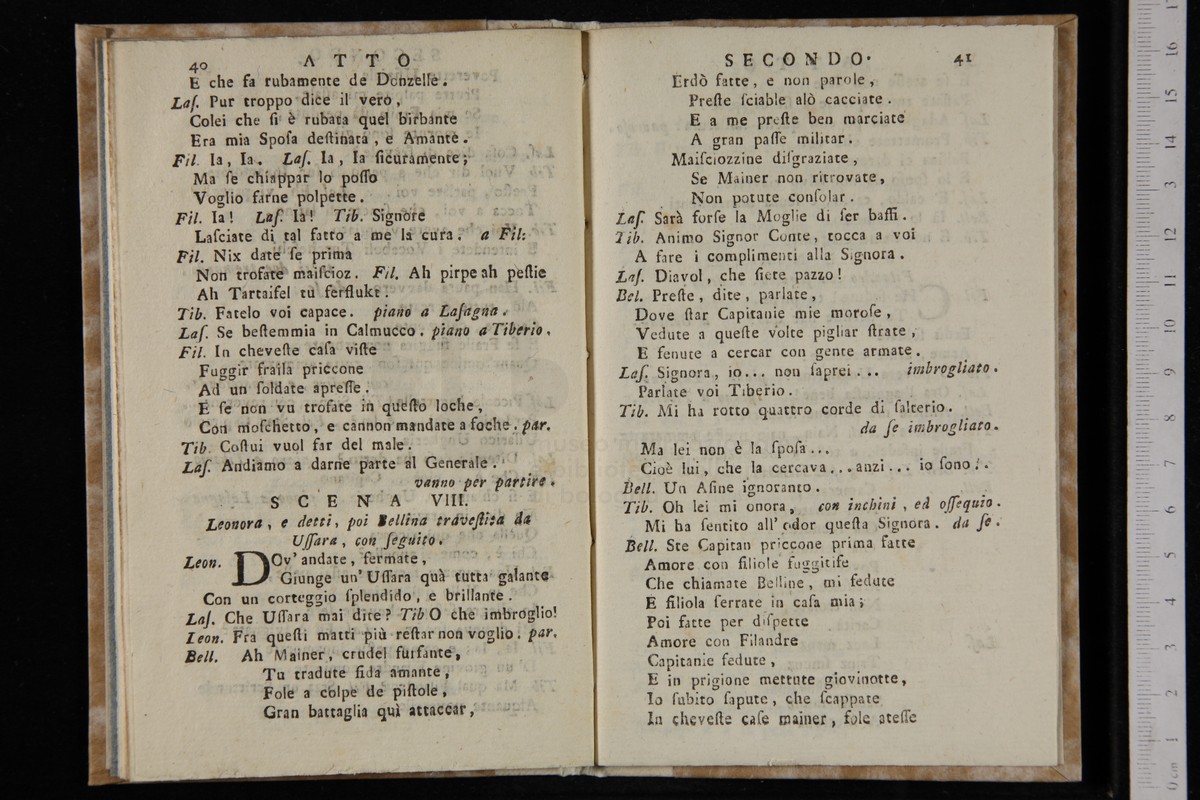 40 ATTO
E che fa rubamente de Donzelle.
Laſ. Pur troppo dice il vero,
Colei che ſi è rubata quel birbante
Era mia Spoſa deſtinata, e Amante.
Fil. Ia, Ia. Laſ. Ia, Ia ſicuramente;
Ma ſe chiappar lo poſſo
Voglio farne polpette.
Fil. Ia! Laſ. Ia! Tib. Signore
Laſciate di tal fatto a me la cura. a Fil:
Fil. Nix date ſe prima
Non trofate maiſcioz. Fil. Ah pirpe ah peſtie
Ah Tartaifel tu ferflukt.
Tib. Fatelo voi capace. piano a Laſagna.
Laſ. Se beſtemmia in Calmucco. piano a Tiberio.
Fil. In cheveſte caſa viſte
Fuggir fraila priccone
Ad un ſoldate apreſſe.
E ſe non vu trofate in queſto loche,
Con moſchetto, e cannon mandate a foche. par.
Tib. Coſtui vuol far del male.
Laſ. Andiamo a darne parte al Generale.
vanno per partire.
SCENA VIII.
Leonora, e detti, poi Bellina traveſtita da
Uſſara, con ſeguito.
Leon. DOv' andate, fermate,
Giunge un' Uſſara quà tutta galante
Con un corteggio ſplendido, e brillante.
Laſ. Che Uſſara mai dite? Tib O che imbroglio!
Leon. Fra queſti matti più reſtar non voglio. par.
Bell. Ah Mainer, crudel furfante,
Tu tradute fida amante,
Fole a colpe de piſtole,
Gran battaglia quì attaccar,
SECONDO. 41
Erdò fatte, e non parole,
Preſte ſciable alò cacciate.
E a me preſte ben marciate
A gran paſſe militar.
Maiſciozzine diſgraziate,
Se Mainer non ritrovate,
Non potute conſolar.
Laſ. Sarà forſe la Moglie di ſer baffi.
Tib. Animo Signor Conte, tocca a voi
A fare i complimenti alla Signora.
Laſ. Diavol, che ſiete pazzo!
Bel. Preſte, dite, parlate,
Dove ſtar Capitanie mie moroſe,
Vedute a queſte volte pigliar ſtrate,
E fenute a cercar con gente armate.
Laſ. Signora, io... non ſaprei... imbrogliato.
Parlate voi Tiberio.
Tib. Mi ha rotto quattro corde di ſalterio.
da ſe imbrogliato.
Ma lei non è la ſpoſa...
Cioè lui, che la cercava... anzi... io ſono..
Bell. Un Aſine ignorante.
Tib. Oh lei mi onora, con inchini, ed oſſequio.
Mi ha ſentito all' odor queſta Signora. da ſe.
Bell. Ste Capitan priccone prima fatte
Amore con filiole fuggitife
Che chiamate Belline, mi fedute
E filiola ferrate in caſa mia;
Poi fatte per diſpette
Amore con Filandre
Capitanie fedute,
E in prigione mettute giovinotte,
Io ſubito ſapute, che ſcappate
In cheveſte caſe mainer, fole ateſſe